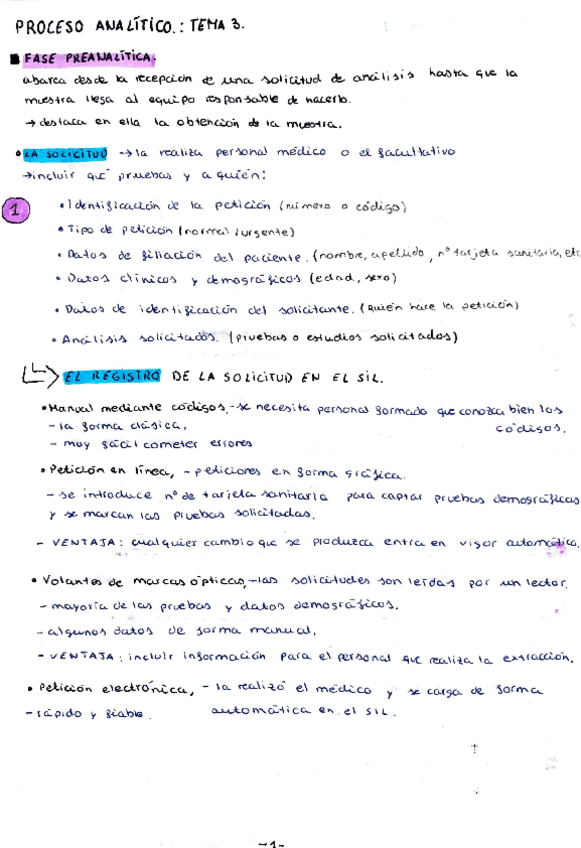 PROCESO ANALÍTICO.: TEMA 3.
FASE PREANALÍTICA.
abarca desde la recepción de una solicitud de análisis hasta que la
muestra llega al equipo responsable de hacerlo.
→ destaca en ella la obtención de la muestra.
• LA SOLICITUD → la realiza personal médico o el facultativo
→ incluir qué pruebas y a quién:
1
• Identificación de la petición (número o código)
• Tipo de petición (normal/urgente)
• Datos de filiación del paciente. (nombre, apellido, nº tarjeta sanitaria, etc
• Datos clínicos y demográficos (edad, sexo)
• Datos de identificación del solicitante. (quién hace la petición)
• Análisis solicitados. (pruebas o estudios solicitados)
EL REGISTRO DE LA SOLICITUD EN EL SIL.
• Manual mediante códigos, - se necesita personal formado que conozca bien los
códigos.
- la forma clásica.
- muy fácil cometer errores
• Petición en línea, - peticiones en forma gráfica.
- se introduce nº de tarjeta sanitaria para captar pruebas demográficas
y se marcan las pruebas solicitadas.
- VENTAJA: cualquier cambio que se produzca entra en vigor automática.
• Volantes de marcas ópticas, - las solicitudes son leídas por un lector.
- mayoría de las pruebas y datos demográficos.
- algunos datos de forma manual.
- VENTAJA: incluir información para el personal que realiza la extracción.
• Petición electrónica, - la realizó el médico y se carga de forma
automática en el SIL.
- rápido y fiable.
-1-